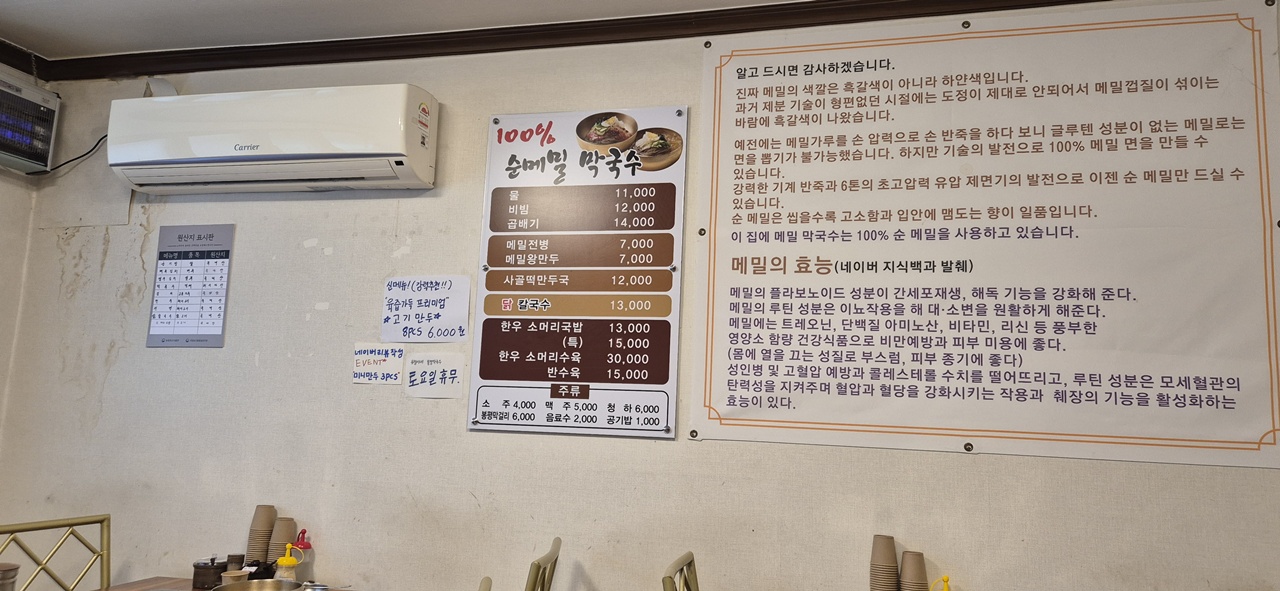 Carrier
원산지 표시판
메뉴명 품목 원산지
신메뉴!(강력추천!!)
"육즙가득 프리미엄"
*고기 만두*
8PCS 6,000원
네이버리뷰작성
EVENT*
"미니만두 3PCS"
토요일 휴무.
100%
순메밀 막국수
물 11,000
비빔 12,000
곱배기 14,000
메밀전병 7,000
메밀왕만두 7,000
사골떡만두국 12,000
닭 칼국수 13,000
한우 소머리국밥 13,000
(특) 15,000
한우 소머리수육 30,000
반수육 15,000
주류
소 주 4,000 맥 주 5,000 청 하 6,000
봉평막걸리 6,000 음료수 2,000 공기밥 1,000
알고 드시면 감사하겠습니다.
진짜 메밀의 색깔은 흑갈색이 아니라 하얀색입니다.
과거 제분 기술이 형편없던 시절에는 도정이 제대로 안되어서 메밀껍질이 섞이는
바람에 흑갈색이 나왔습니다.
예전에는 메밀가루를 손 압력으로 손 반죽을 하다 보니 글루텐 성분이 없는 메밀로는
면을 뽑기가 불가능했습니다. 하지만 기술의 발전으로 100% 메밀 면을 만들 수
있습니다.
강력한 기계 반죽과 6톤의 초고압력 유압 제면기의 발전으로 이젠 순 메밀만 드실 수
있습니다.
순 메밀은 씹을수록 고소함과 입안에 맴도는 향이 일품입니다.
이 집에 메밀 막국수는 100% 순 메밀을 사용하고 있습니다.
메밀의 효능(네이버 지식백과 발췌)
메밀의 플라보노이드 성분이 간세포재생, 해독 기능을 강화해 준다.
메밀의 루틴 성분은 이뇨작용을 해 대·소변을 원활하게 해준다.
메밀에는 트레오닌, 단백질 아미노산, 비타민, 리신 등 풍부한
영양소 함량 건강식품으로 비만예방과 피부 미용에 좋다.
(몸에 열을 끄는 성질로 부스럼, 피부 종기에 좋다)
성인병 및 고혈압 예방과 콜레스테롤 수치를 떨어뜨리고, 루틴 성분은 모세혈관의
탄력성을 지켜주며 혈압과 혈당을 강화시키는 작용과 췌장의 기능을 활성화하는
효능이 있다.